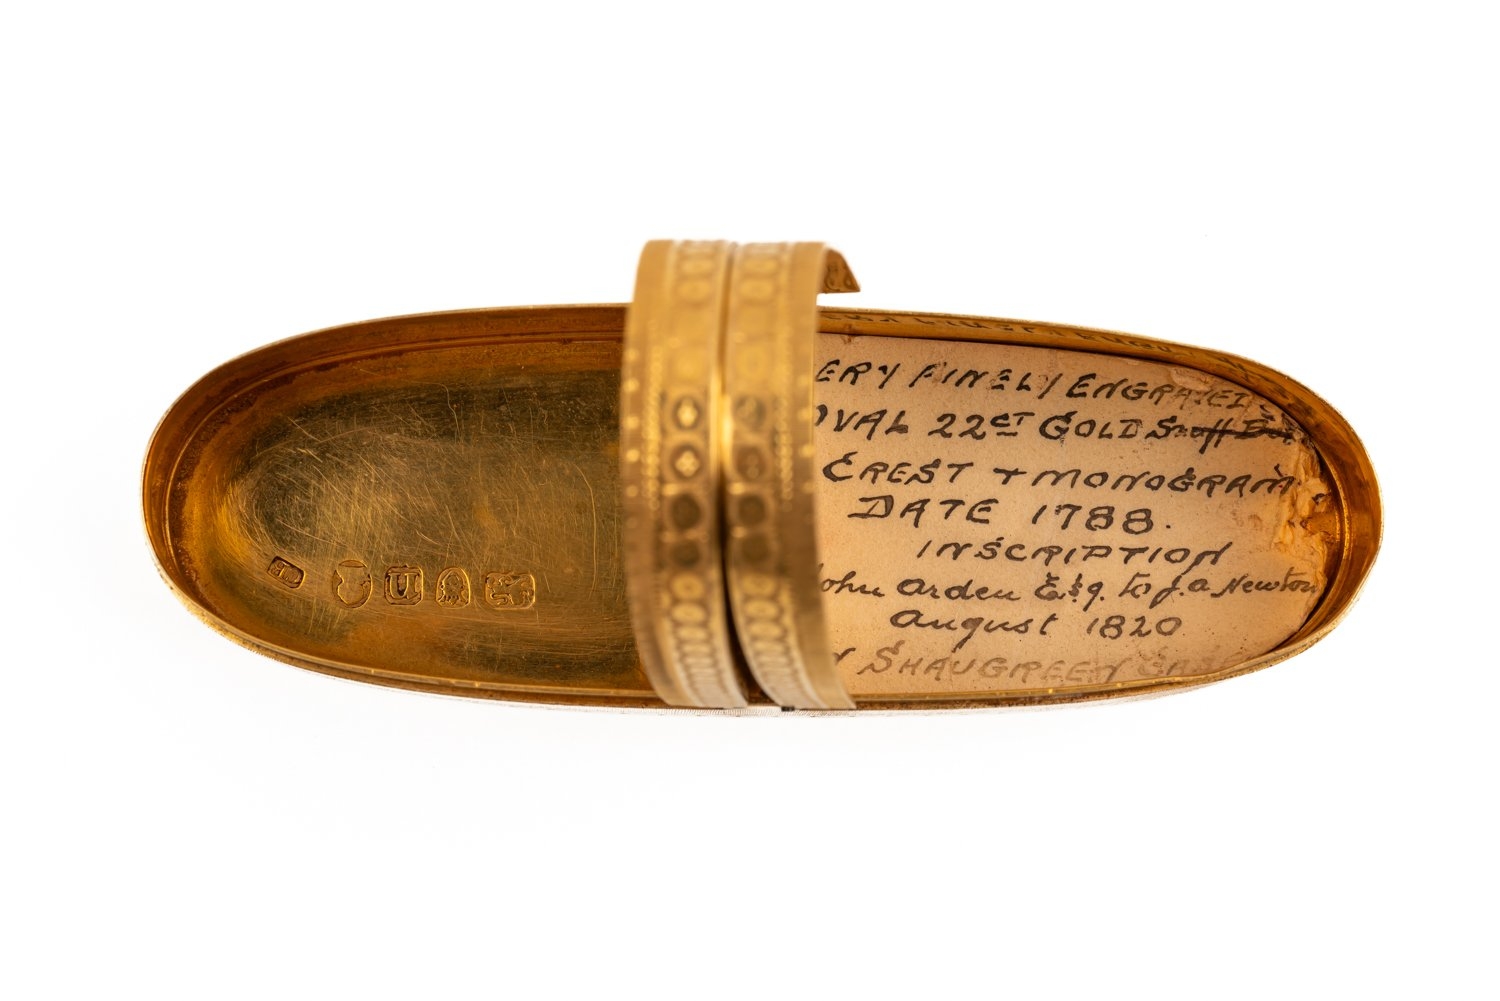 ERY FINELY ENGRAVED
OVAL 22CT GOLD Snuff Box
CREST + MONOGRAM
DATE 1788.
INSCRIPTION
John Arden Esq. to J. A. Newton
August 1820
SHAUGREEN CASE
U